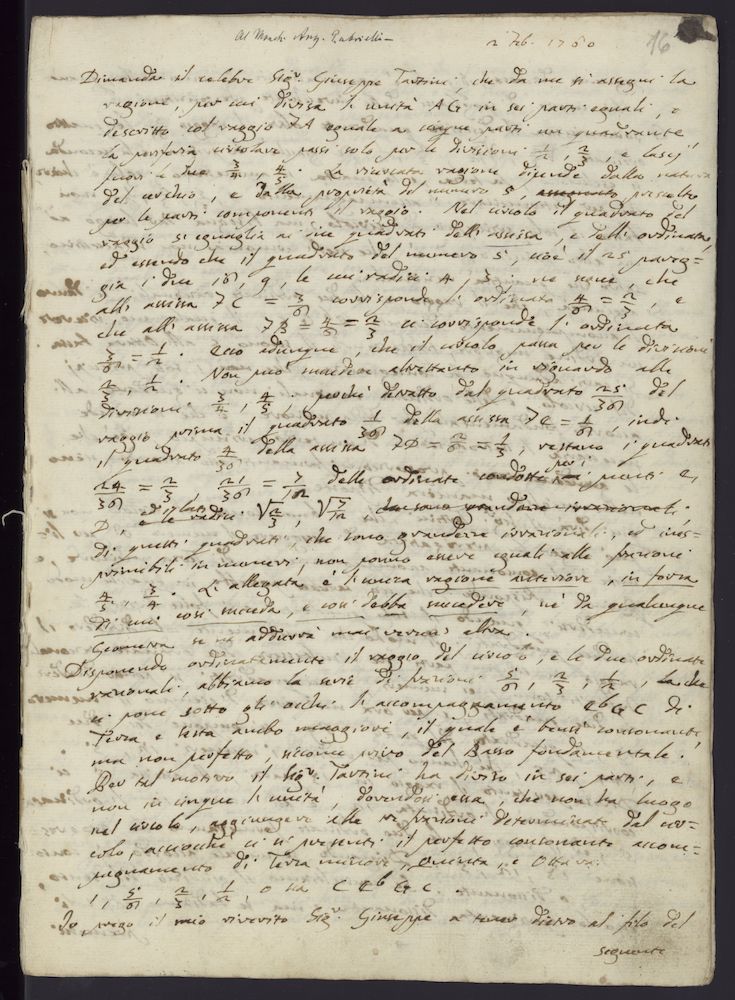 Al March. Ang. Gabrielli
2 Feb. 1760
16
Dimanda il celebre Sigr. Giuseppe Tartini, che da me si assegni la
ragione, per cui divisa l'unità AG in sei parti eguali, e
descritto col raggio FA eguale a cinque parti un quadrante
la periferia circolare passi solo per le divisioni 1/2, 2/3, e lasci
fuori le due 3/4, 4/5. La ricercata ragione dipende dalla natura
del cerchio, e dalla proprietà del numero 5, prescelto
per le parti componenti il raggio. Nel circolo il quadrato del
raggio si eguaglia ai due quadrati dell'assissa, e dell'ordinata,
ed essendo che il quadrato del numero 5, cioè il 25 pareg=
gia i due 16, 9, le cui radici 4, 3, ne siegue, che
all'assissa FC = 3/6 corrisponde l'ordinata 4/6 = 2/3, e
che all'assissa FB = 4/6 = 2/3 ci corrisponde l'ordinata
3/6 = 1/2. Ecco adunque, che il circolo passa per le divisioni
2/3, 1/2. Non può succedere altrettanto in riguardo alle
divisioni 3/4, 4/5. perché detratto dal quadrato 25/36 del
raggio prima il quadrato 1/36 della assissa FE = 1/6, indi
il quadrato 4/36 della assissa FD = 2/6 = 1/3, restano i quadrati
24/36 = 2/3, 21/36 = 7/12 delle ordinate condotte per i punti E,
D, e le radici √2/3, √7/12
di questi quadrati, che sono grandezze irrazionali, ed ines=
primibili in numeri, non ponno essere eguali alle frazioni
4/5, 3/4. L'allegata è l'unica ragione anteriore, in forza
di cui così succeda, e così debba succedere, nè da qualunque
Geometra se ne addurrà mai verun'altra.
Disponendo ordinatamente il raggio del circolo, e le due ordinate
razionali, abbiamo la serie di frazioni 5/6, 2/3, 1/2, la che
ci pone sotto gli occhi l'accompagnamento Eb G C di
Terza e sesta ambo maggiori, il quale è bensì consonante
ma non perfetto, siccome privo del Basso fondamentale.
Per tal motivo il Sigr. Tartini ha diviso in sei parti, e
non in cinque l'unità, dovendosi essa, che non ha luogo
nel circolo, aggiungere alle tre frazioni determinate dal cir=
colo, acciocchè ci si presenti il perfetto consonante accom=
pagnamento di Terza minore, Quinta, e Ottava.
1, 5/6, 2/3, 1/2, o sia C Eb G C.
Io prego il mio riverito Sigr. Giuseppe a tener dietro al filo del
seguente